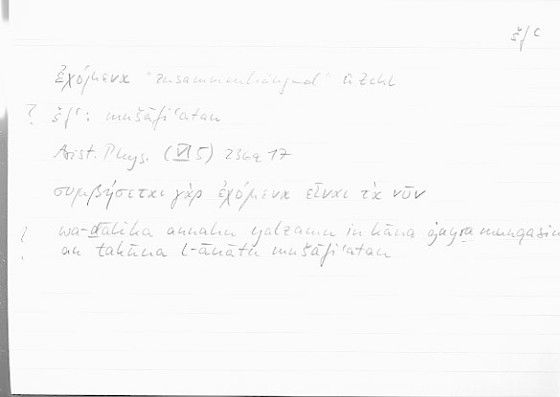 šfʿ
ἐχόμενα "zusammenhängend" ü Zekl
? šfʿ: mušāfiʿatan
Arist. Phys. (VI 5) 236a 17
συμβήσεται γὰρ ἐχόμενα εἶναι τὰ νῦν
? wa-ḏālika annahu yalzamu in kāna ġayra munqasim
an takūna l-ānātu mušāfiʿatan